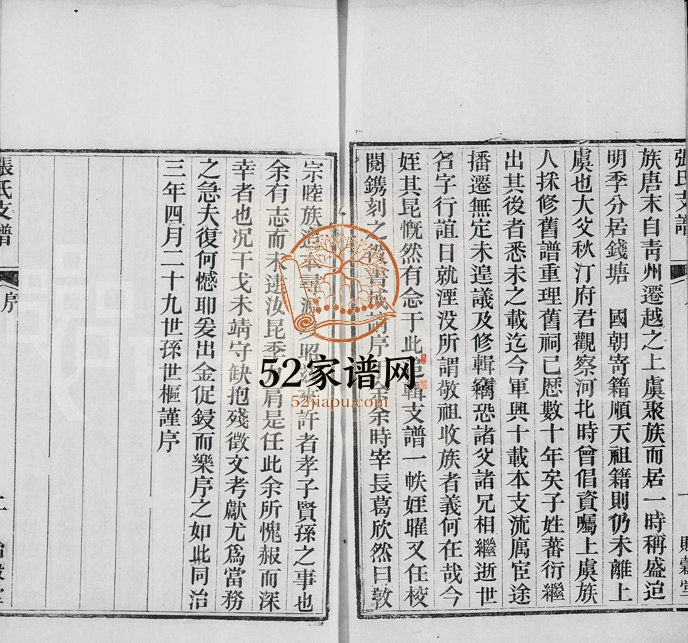 張氏支譜
族唐末自靑州遷越之上虞聚族而居一時稱盛迨
明季分居錢塘　國朝寄籍順天祖籍則仍未離上
虞也大父秋汀府君觀察河北時曾倡資囑上虞族
人採修舊譜重理舊祠已歷數十年矣子姓蕃衍繼
出其後者悉未之載迄今軍興十載本支流寓宦途
播遷無定未遑議及修輯竊恐諸父諸兄相繼逝世
名字行誼日就湮没所謂敬祖收族者義何在哉今
姪其昆慨然有念于此 輯支譜一帙姪曜又任校
閱鐫刻之 書成請序 余時宰長葛欣然曰敦
宗睦族 本尋源 昭 許者孝子賢孫之事也
余有志而未逮汝昆季 肩是任此余所愧赧而深
幸者也况干戈未靖守缺抱殘徵文考獻尤爲當務
之急夫復何憾耶爰出金促鋟而樂序之如此同治
三年四月二十九世孫世樞謹序
張氏支譜
序
52家谱网
52jiapu.com